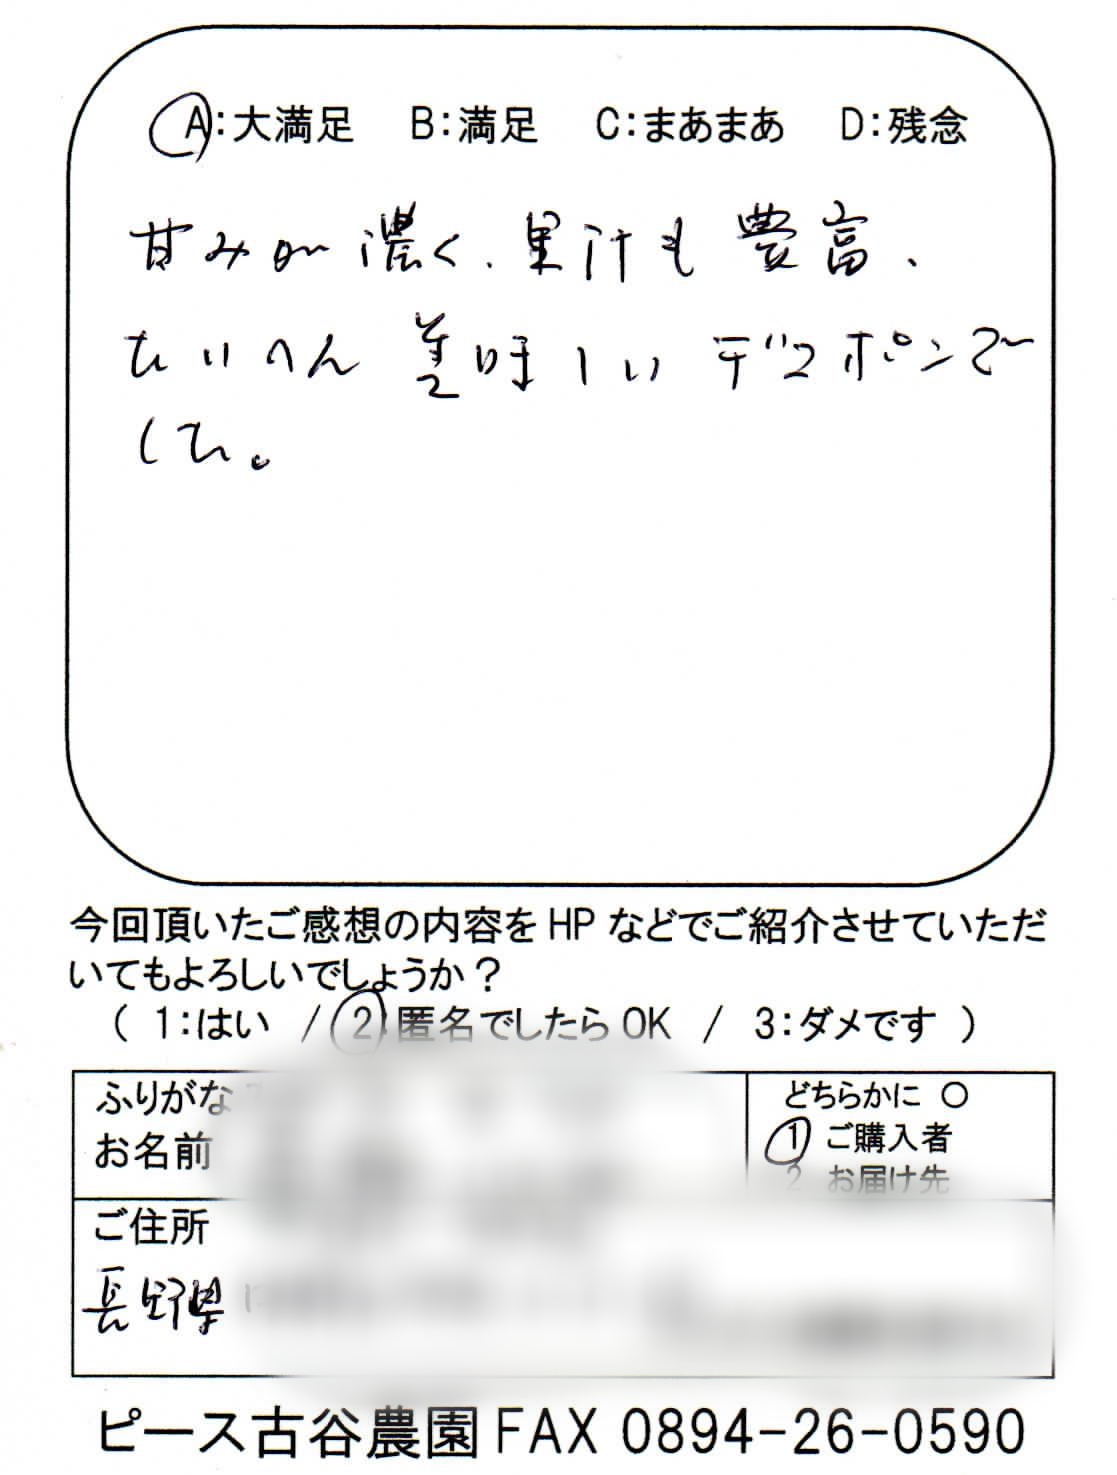 A：大満足 B：満足 C：まあまあ D：残念
甘みが濃く、果汁も豊富、
たいへん美味しいデコポンで
した。
今回頂いたご感想の内容をHPなどでご紹介させていただ
いてもよろしいでしょうか？
（ 1：はい / 2：匿名でしたらOK / 3：ダメです ）
ふりがな
お名前
どちらかに ○
1 ご購入者
2 お届け先
ご住所
長野県
ピース古谷農園 FAX 0894-26-0590